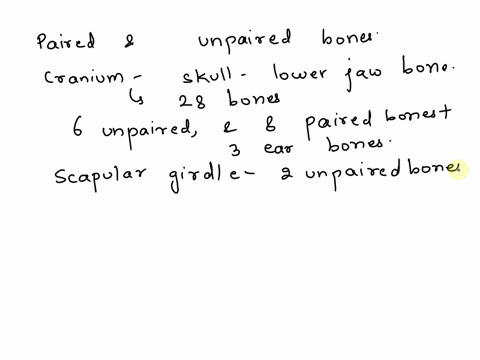 Paired & unpaired bones.
Cranium - skull - lower jaw bone.
↳ 28 bones
6 unpaired, & 8 paired bones +
3 ear bones.
Scapular girdle - 2 unpaired bones